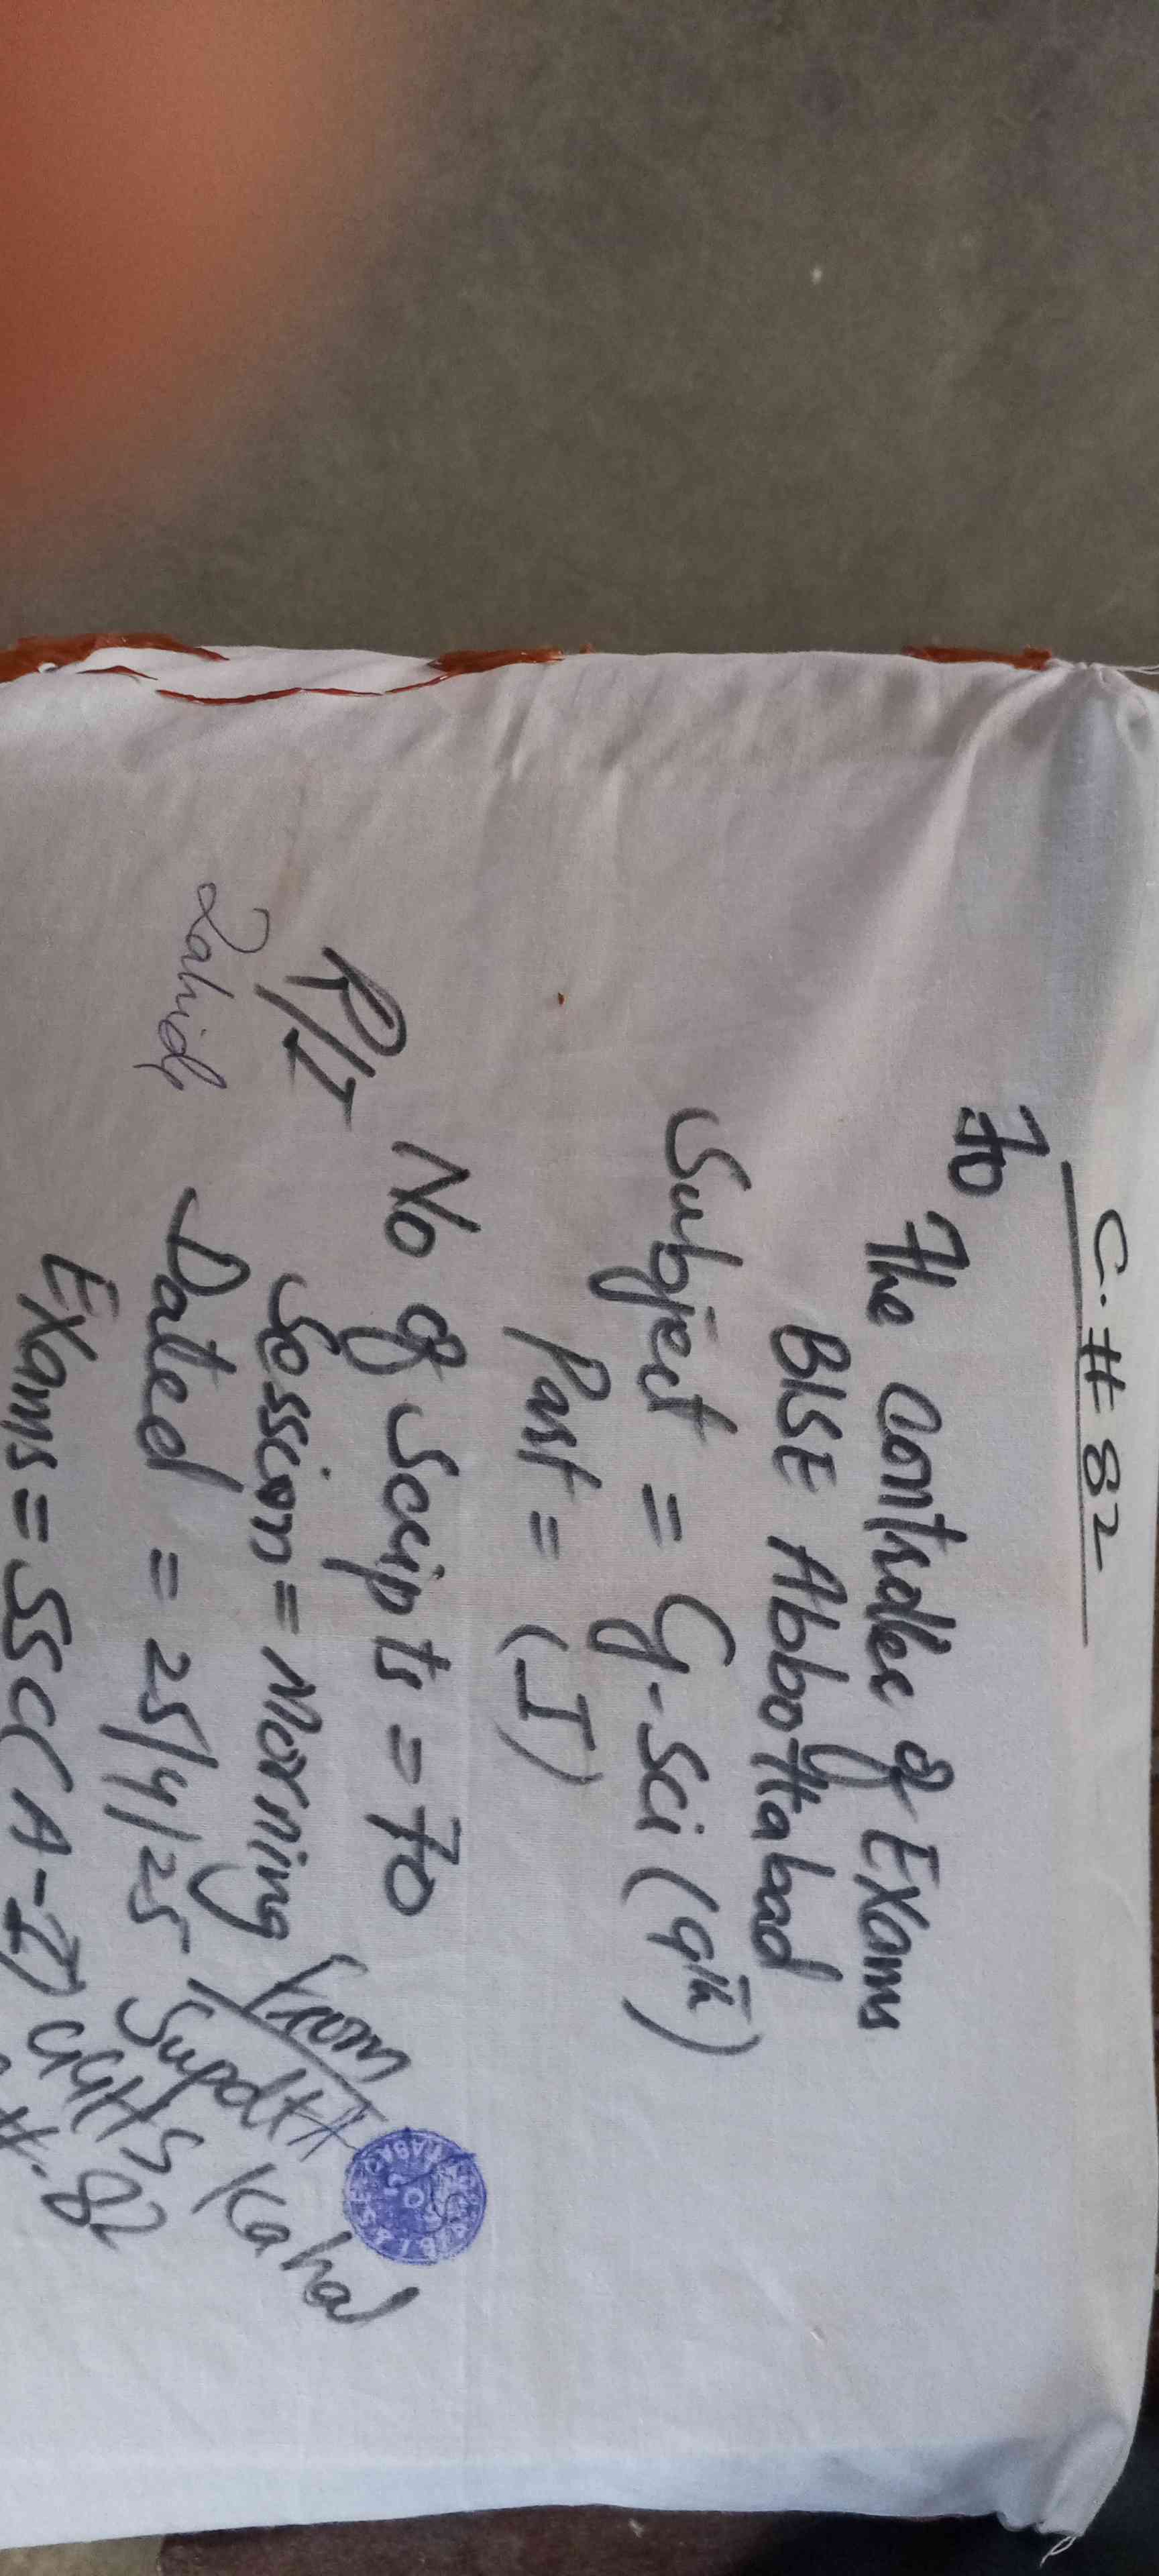 C.# 82
To
The Controller of Exams
BISE Abbottabad
Subject = G-Sci (9th)
Part = (I)
No of Scripts = 70
R/I
Zahid
Session = Morning
Dated = 25/4/25
Exams = SSC(A-I)
Supdtt
GHSS Kahal